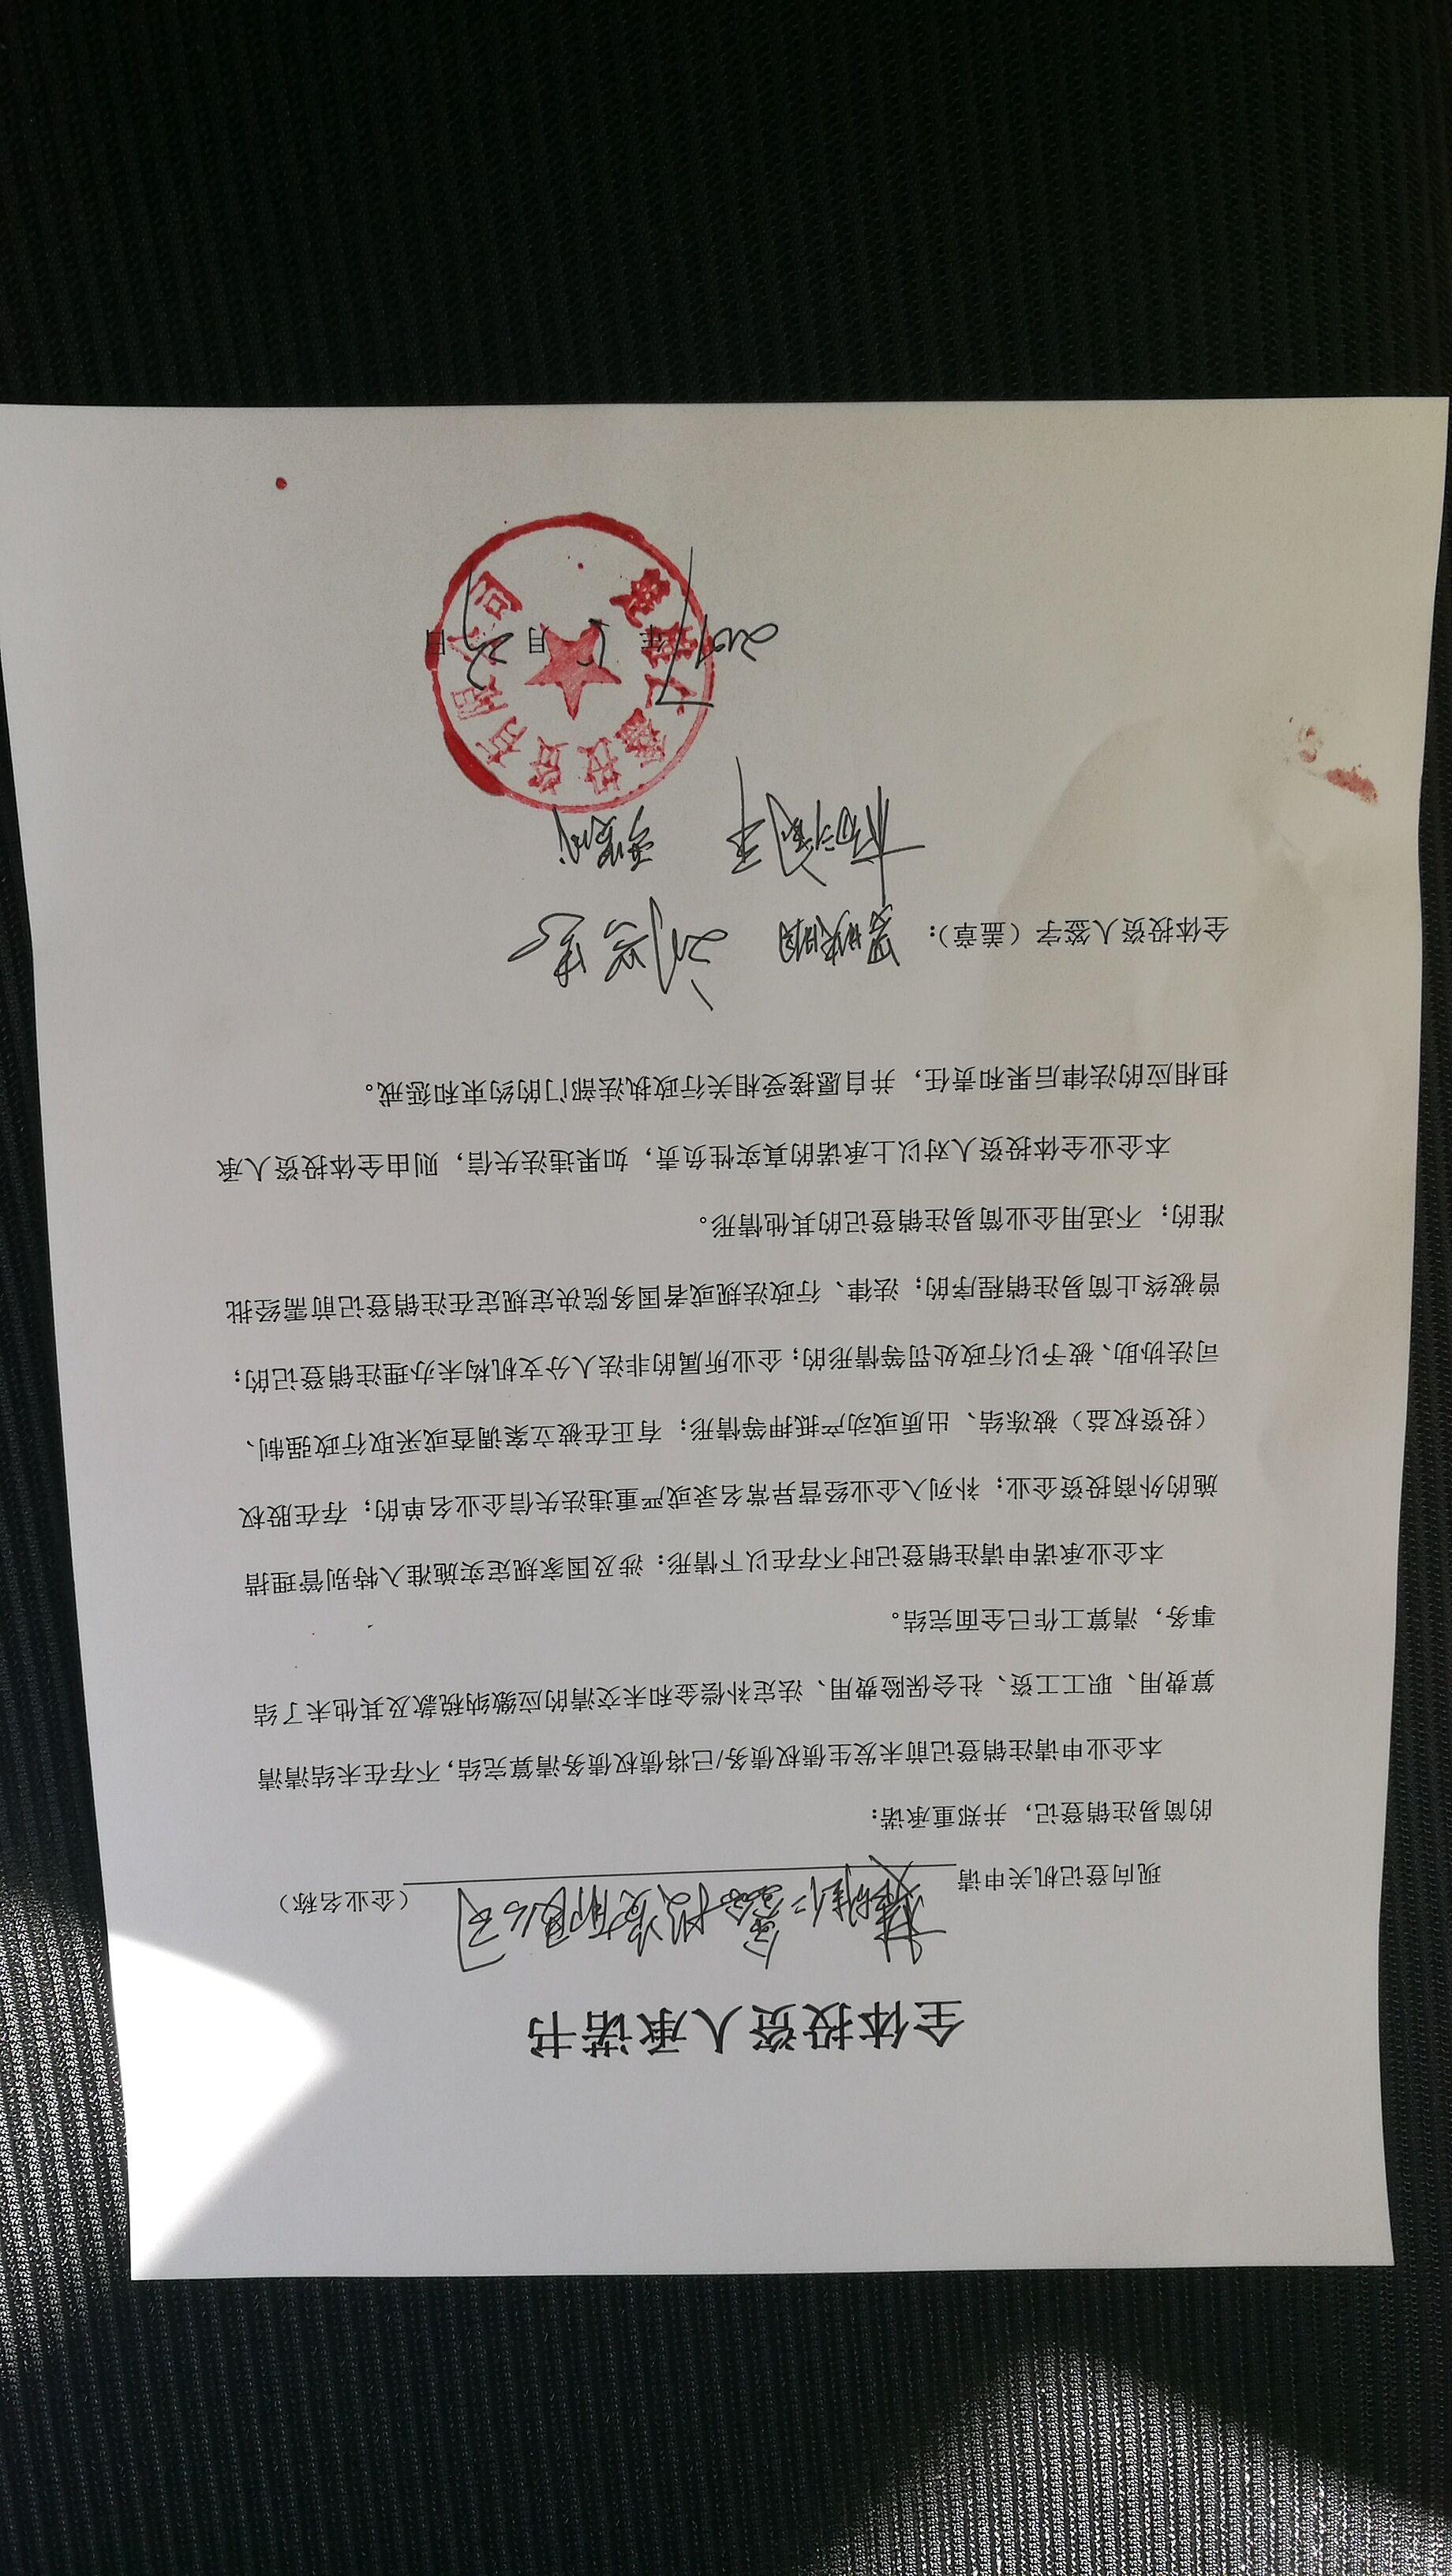 全体投资人承诺书
现向登记机关申请 投资有限公司 （企业名称）
的简易注销登记，并郑重承诺：
本企业申请注销登记前未发生债权债务/已将债权债务清算完结，不存在未结清清
算费用、职工工资、社会保险费用、法定补偿金和未交清的应缴纳税款及其他未了结
事务，清算工作已全面完结。
本企业承诺申请注销登记时不存在以下情形：涉及国家规定实施准入特别管理措
施的外商投资企业；补列入企业经营异常名录或严重违法失信企业名单的；存在股权
（投资权益）被冻结、出质或动产抵押等情形；有正在被立案调查或采取行政强制、
司法协助、被予以行政处罚等情形的；企业所属的非法人分支机构未办理注销登记的；
曾被终止简易注销程序的；法律、行政法规或者国务院决定规定在注销登记前需经批
准的；不适用企业简易注销登记的其他情形。
本企业全体投资人对以上承诺的真实性负责，如果违法失信，则由全体投资人承
担相应的法律后果和责任，并自愿接受相关行政执法部门的约束和惩戒。
全体投资人签字（盖章）：
投资有限公司
年 月 日